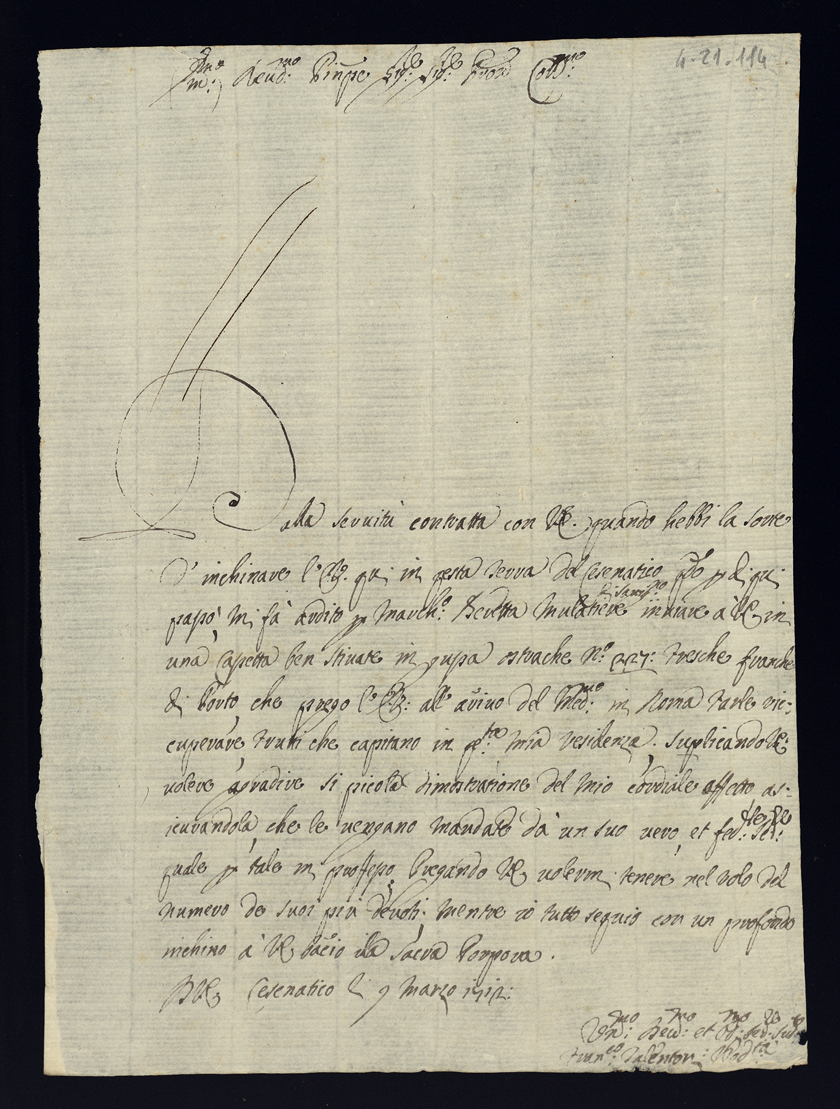 4-21-114
Em:mo Reud:mo Pinpe Sig: Sig: Pron Coll:mo
Dalla seruitù contratta con VE. quando hebbi la sorte
d'inchinare l' qui in Terra del Cesenatico p di qui
mi fà ardito p March: Mulatiere di Sant inuiare à VE in
una Capetta ben stiuate in ostrache N:o 227: fresche franche
di Porto, che prego l' all' ariuo del Med:mo in Roma farle ric:
cuperare frutti che capitano in mia residenza. Suplicando VE:
uolere agradire si picola dimostratione del mio cordiale affetto as:
icurandola, che le uengano mandate dà un suo uero, et fed:le Se:
quale p tale mi proffesso Pregando VE uolermi tenere nel rolo del
numero de suoi piu deuoti; mentre io tutto sequio con un profondo
inchino à VE bacio illa Sacra Porpora.
DVE Cesenatico li 9 Marzo 1712:
Um:mo Reu:mo et
Fran:co Valentin: